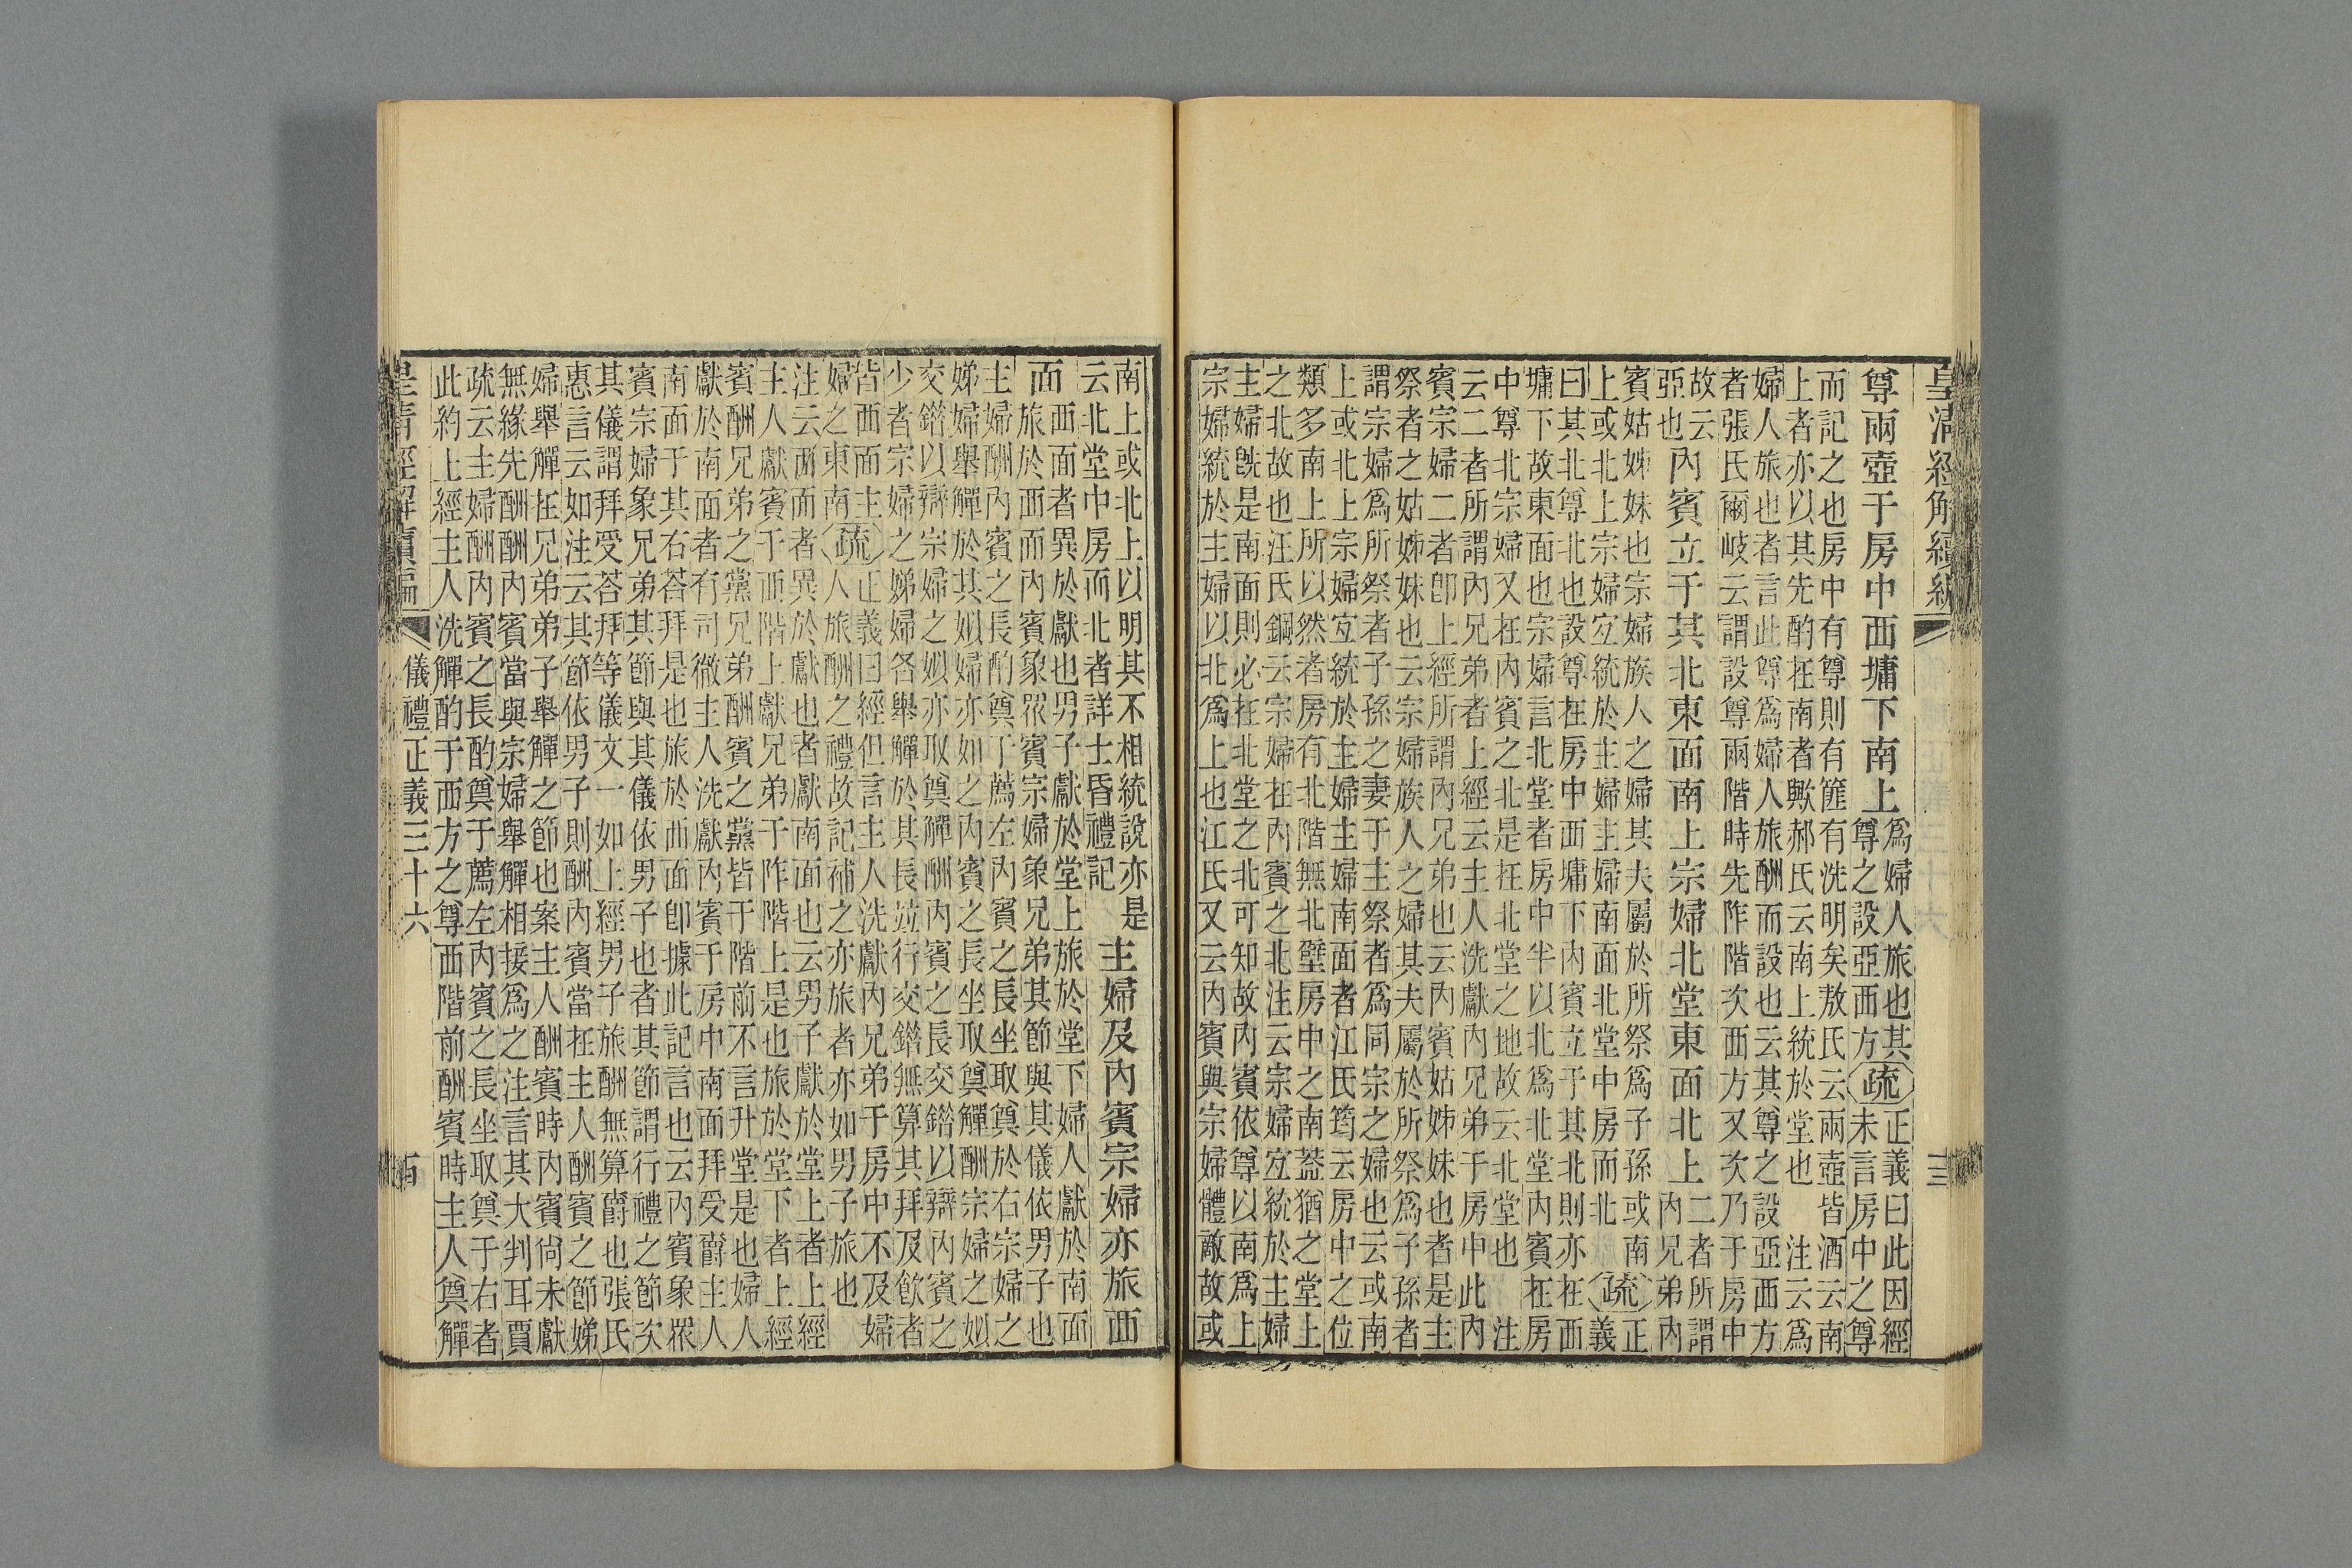 皇清經解續編 十三
尊兩壺于房中西墉下南上 為婦人旅也其尊之設亞西方 疏 正義曰此因經未言房中之尊
而記之也房中有尊則有篚有洗明矣敖氏云兩壺皆酒云南
上者亦以其先酌在南者歟郝氏云南上統於堂也 注云為
婦人旅也者言此尊為婦人旅酬而設也云其尊之設亞西方
者張氏爾岐云謂設尊兩階時先阼階次西方又次乃于房中
故云亞也 內賓立于其北東面南上宗婦北堂東面北上 二者所謂內兄弟內
賓姑姊妹也宗婦族人之婦其夫屬於所祭為子孫或南
上或北上宗婦宜統於主婦主婦南面北堂中房而北 疏 正義
曰其北尊北也設尊在房中西墉下內賓立于其北則亦在西
墉下故東面也宗婦言北堂者房中半以北為北堂內賓在房
中尊北宗婦又在內賓之北是在北堂之地故云北堂也 注
云二者所謂內兄弟者上經云主人洗獻內兄弟于房中此內
賓宗婦二者即上經所謂內兄弟也云內賓姑姊妹也者是主
祭者之姑姊妹也云宗婦族人之婦其夫屬於所祭為子孫者
謂宗婦為所祭者子孫之妻于主祭者為同宗之婦也云或南
上或北上宗婦宜統於主婦主婦南面者江氏筠云房中之位
類多南上所以然者房有北階無北壁房中之南蓋猶之堂上
之北故也汪氏鋼云宗婦在內賓之北注云宗婦宜統於主婦
主婦既是南面則必在北堂之北可知故內賓依尊以南為上
宗婦統於主婦以北為上也江氏又云內賓與宗婦體敵故或
南上或北上以明其不相統說亦是
云北堂中房而北者詳士昏禮記 主婦及內賓宗婦亦旅西
面 西面者異於獻也男子獻於堂上旅於堂下婦人獻於南面
旅於西面而內賓象眾賓宗婦象兄弟其節與其儀依男子也
主婦酬內賓之長酌奠于薦左內賓之長坐取奠於右宗婦之
娣婦舉觶於其姒婦亦如之內賓之長坐取奠觶酬宗婦之姒
交錯以辯宗婦之姒亦取奠觶酬內賓之長交錯以辯內賓之
少者宗婦之娣婦各舉觶於其長並行交錯無算其拜及飲者
皆西面主婦之東南 疏 正義曰經但言主人洗獻內兄弟于房中不及婦
人旅酬之禮故記補之亦旅者亦如男子旅也
注云西面者異於獻也者獻南面也云男子獻於堂上者上經
主人獻賓于西階上獻兄弟于阼階上是也旅於堂下者上經
賓酬兄弟之黨兄弟酬賓之黨皆于階前不言升堂是也婦人
獻於南面者有司徹主人洗獻內賓于房中南面拜受爵主人
南面于其右荅拜是也旅於西面即據此記言也云內賓象眾
賓宗婦象兄弟其節與其儀依男子也者其節謂行禮之節次
其儀謂拜受荅拜等儀文一如上經男子旅酬無算爵也張氏
惠言云如注云其節依男子則酬內賓當在主人酬賓之節娣
婦舉觶在兄弟弟子舉觶之節也案主人酬賓時內賓尚未獻
無緣先酬酬內賓當與宗婦舉觶相接為之注言其大判耳賈
疏云主婦酬內賓之長酌奠于薦左內賓之長坐取奠于右者
此約上經主人洗觶酌于西方之尊西階前酬賓時主人奠觶
皇清經解續編 儀禮正義三十六